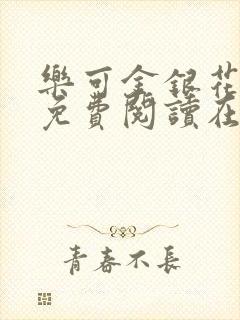 樂可金銀花
免費閱讀在
青春不長